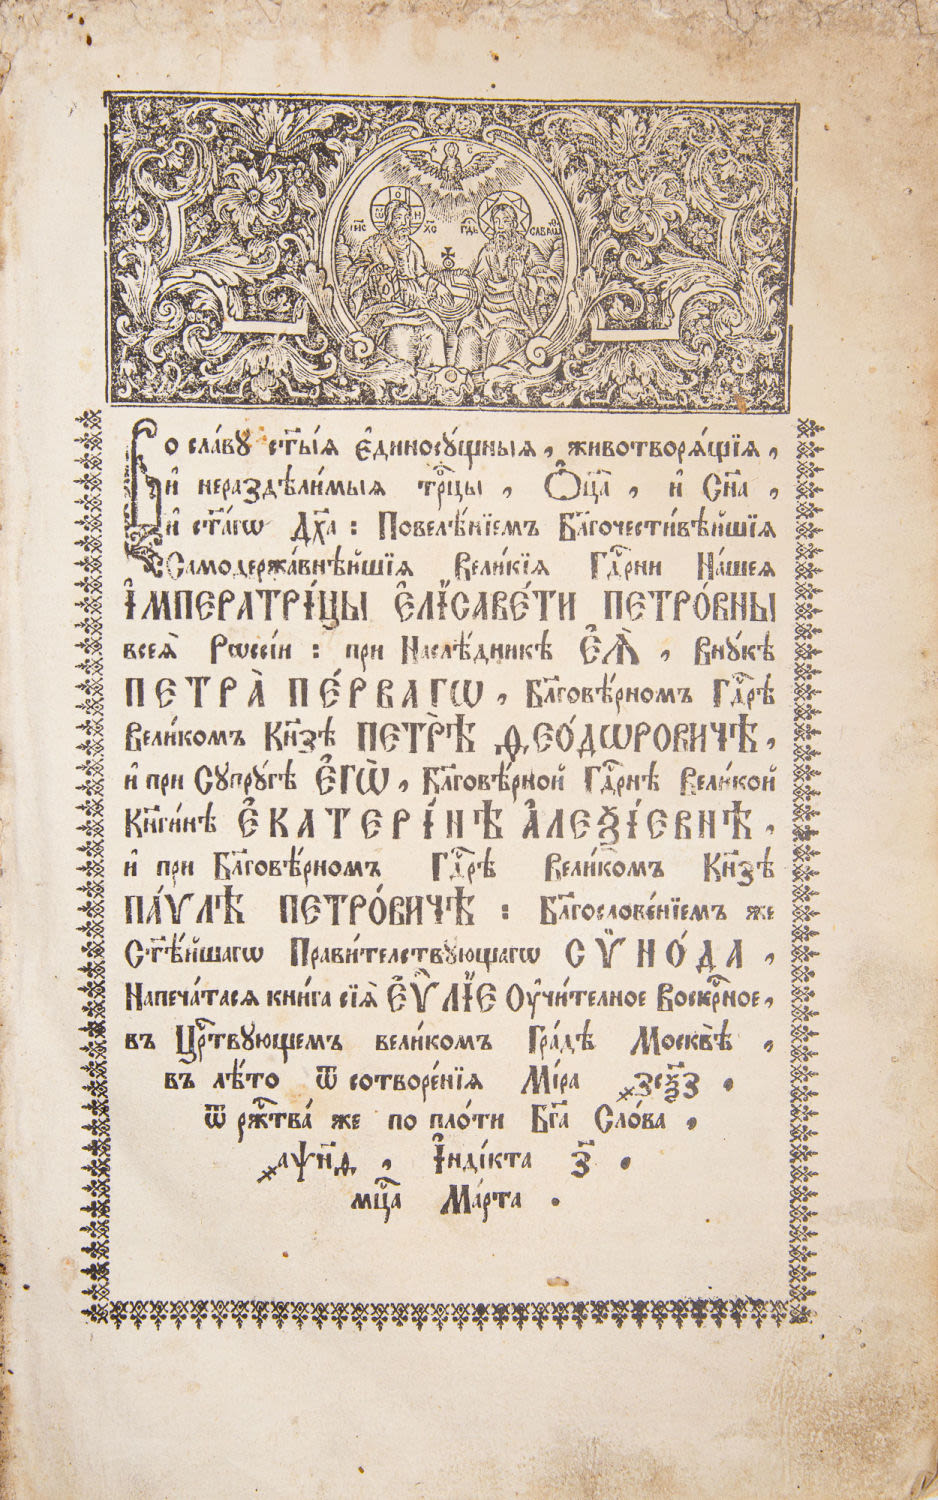 І҃ИС Х҃С Г҃ДЬ САВАѠ
Во сла́вꙋ ст҃ы́ѧ є҆диносꙋ́щныѧ, животворѧ́щїѧ,
и҆ нераздѣли́мыѧ трⷪ҇цы, Ѻ҆ц҃а̀, и҆ Сн҃а,
и҆ ст҃а́гѡ Дх҃а: Повелѣ́нїемъ Бл҃гочести́вѣйшїѧ
Самодержа́внѣйшїѧ Вели́кїѧ Гдⷭ҇рни На́шеѧ
І҆МПЕРАТРІ́ЦЫ Є҆ЛІСАВЕ́ТИ ПЕТРО́ВНЫ
всеѧ̀ Рѡссі́и: при Наслѣ́дникѣ Є҆Ѧ̀, Внꙋ́кѣ
ПЕТРА̀ ПЕ́РВАГѠ, Бл҃говѣ́рномъ Гдⷭ҇рѣ
Вели́комъ Кн҃зѣ ПЕТРѢ̀ Ѳ,ЕО́ДѠРОВИЧѢ,
и҆ при Сꙋпрꙋ́гѣ Є҆ГѠ̀, Бл҃говѣ́рной Гдⷭ҇рнѣ Вели́кой
Кн҃ги́нѣ Є҆КАТЕРІ́НѢ А҆ЛЕѮІ́ЕВНѢ,
и҆ при Бл҃говѣ́рномъ Гдⷭ҇рѣ Вели́комъ Кн҃зѣ
ПА́ѴЛѢ ПЕТРО́ВИЧѢ: Бл҃гослове́нїемъ же
Ст҃ѣ́йшагѡ Прави́телствꙋющагѡ СѴ̈НО́ДА,
Напеча́тасѧ кни́га сїѧ̀ Є҆Ѵⷢ҇ЛІЕ Оу҆чи́телное Воскрⷭ҇ное,
въ Црⷭ҇твꙋющемъ вели́комъ Гра́дѣ Москвѣ̀,
въ лѣ́то ѿ сотворе́нїѧ Мі́ра ҂зсѯ҃з.
ѿ ржⷭ҇тва́ же по пло́ти Бг҃а Сло́ва,
҂аѱн҃ѳ, І҆ндікта з҃.
мцⷭ҇а Ма́рта.